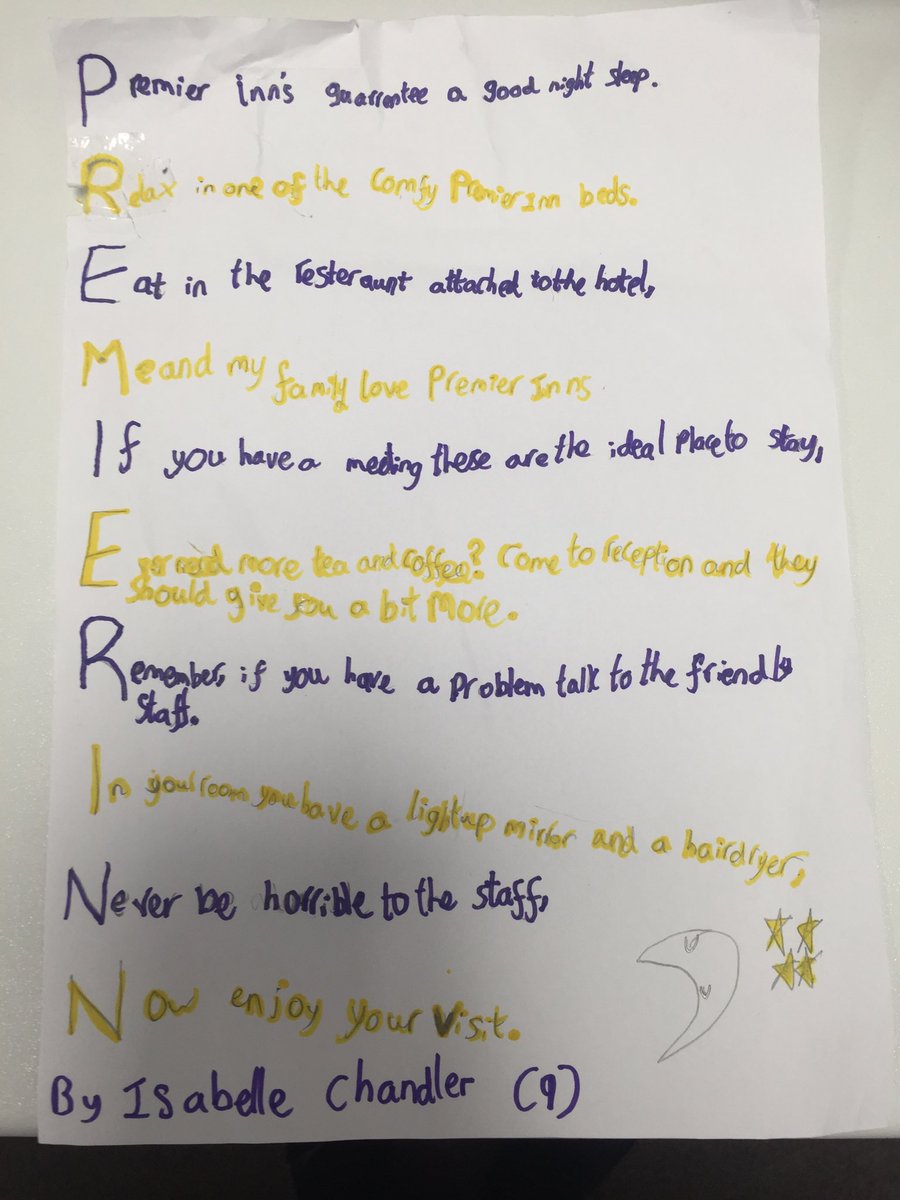 Premier Inn's guarrantee a good night sleep.
Relax in one of the Comfy Premier Inn beds.
Eat in the resteraunt attached to the hotel,
Me and my family love Premier Inns
If you have a meeting these are the ideal place to stay,
E more tea and coffee? Come to reception and they
should give you a bit more.
Remember, if you have a problem talk to the friendly
staff.
In your room you have a light up mirror and a hairdryer,
Never be horrible to the staff,
Now enjoy your visit.
By Isabelle Chandler (9)